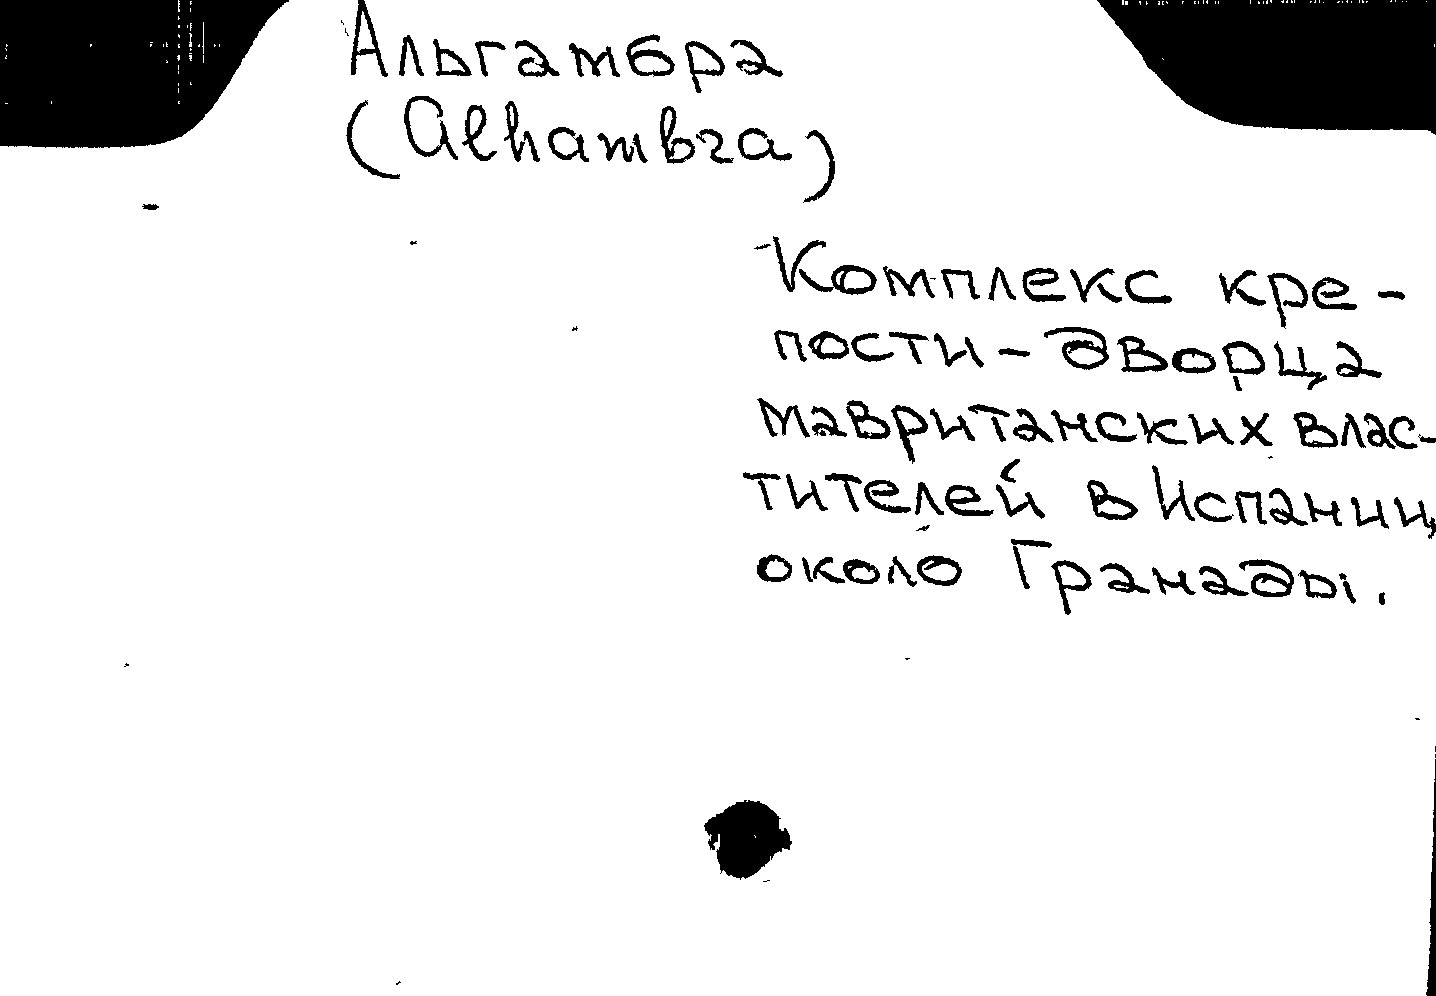 Альгамбра
(Alhambra)
Комплекс кре-
пости-дворца
мавританских влас-
тителей в Испании,
около Гранады.